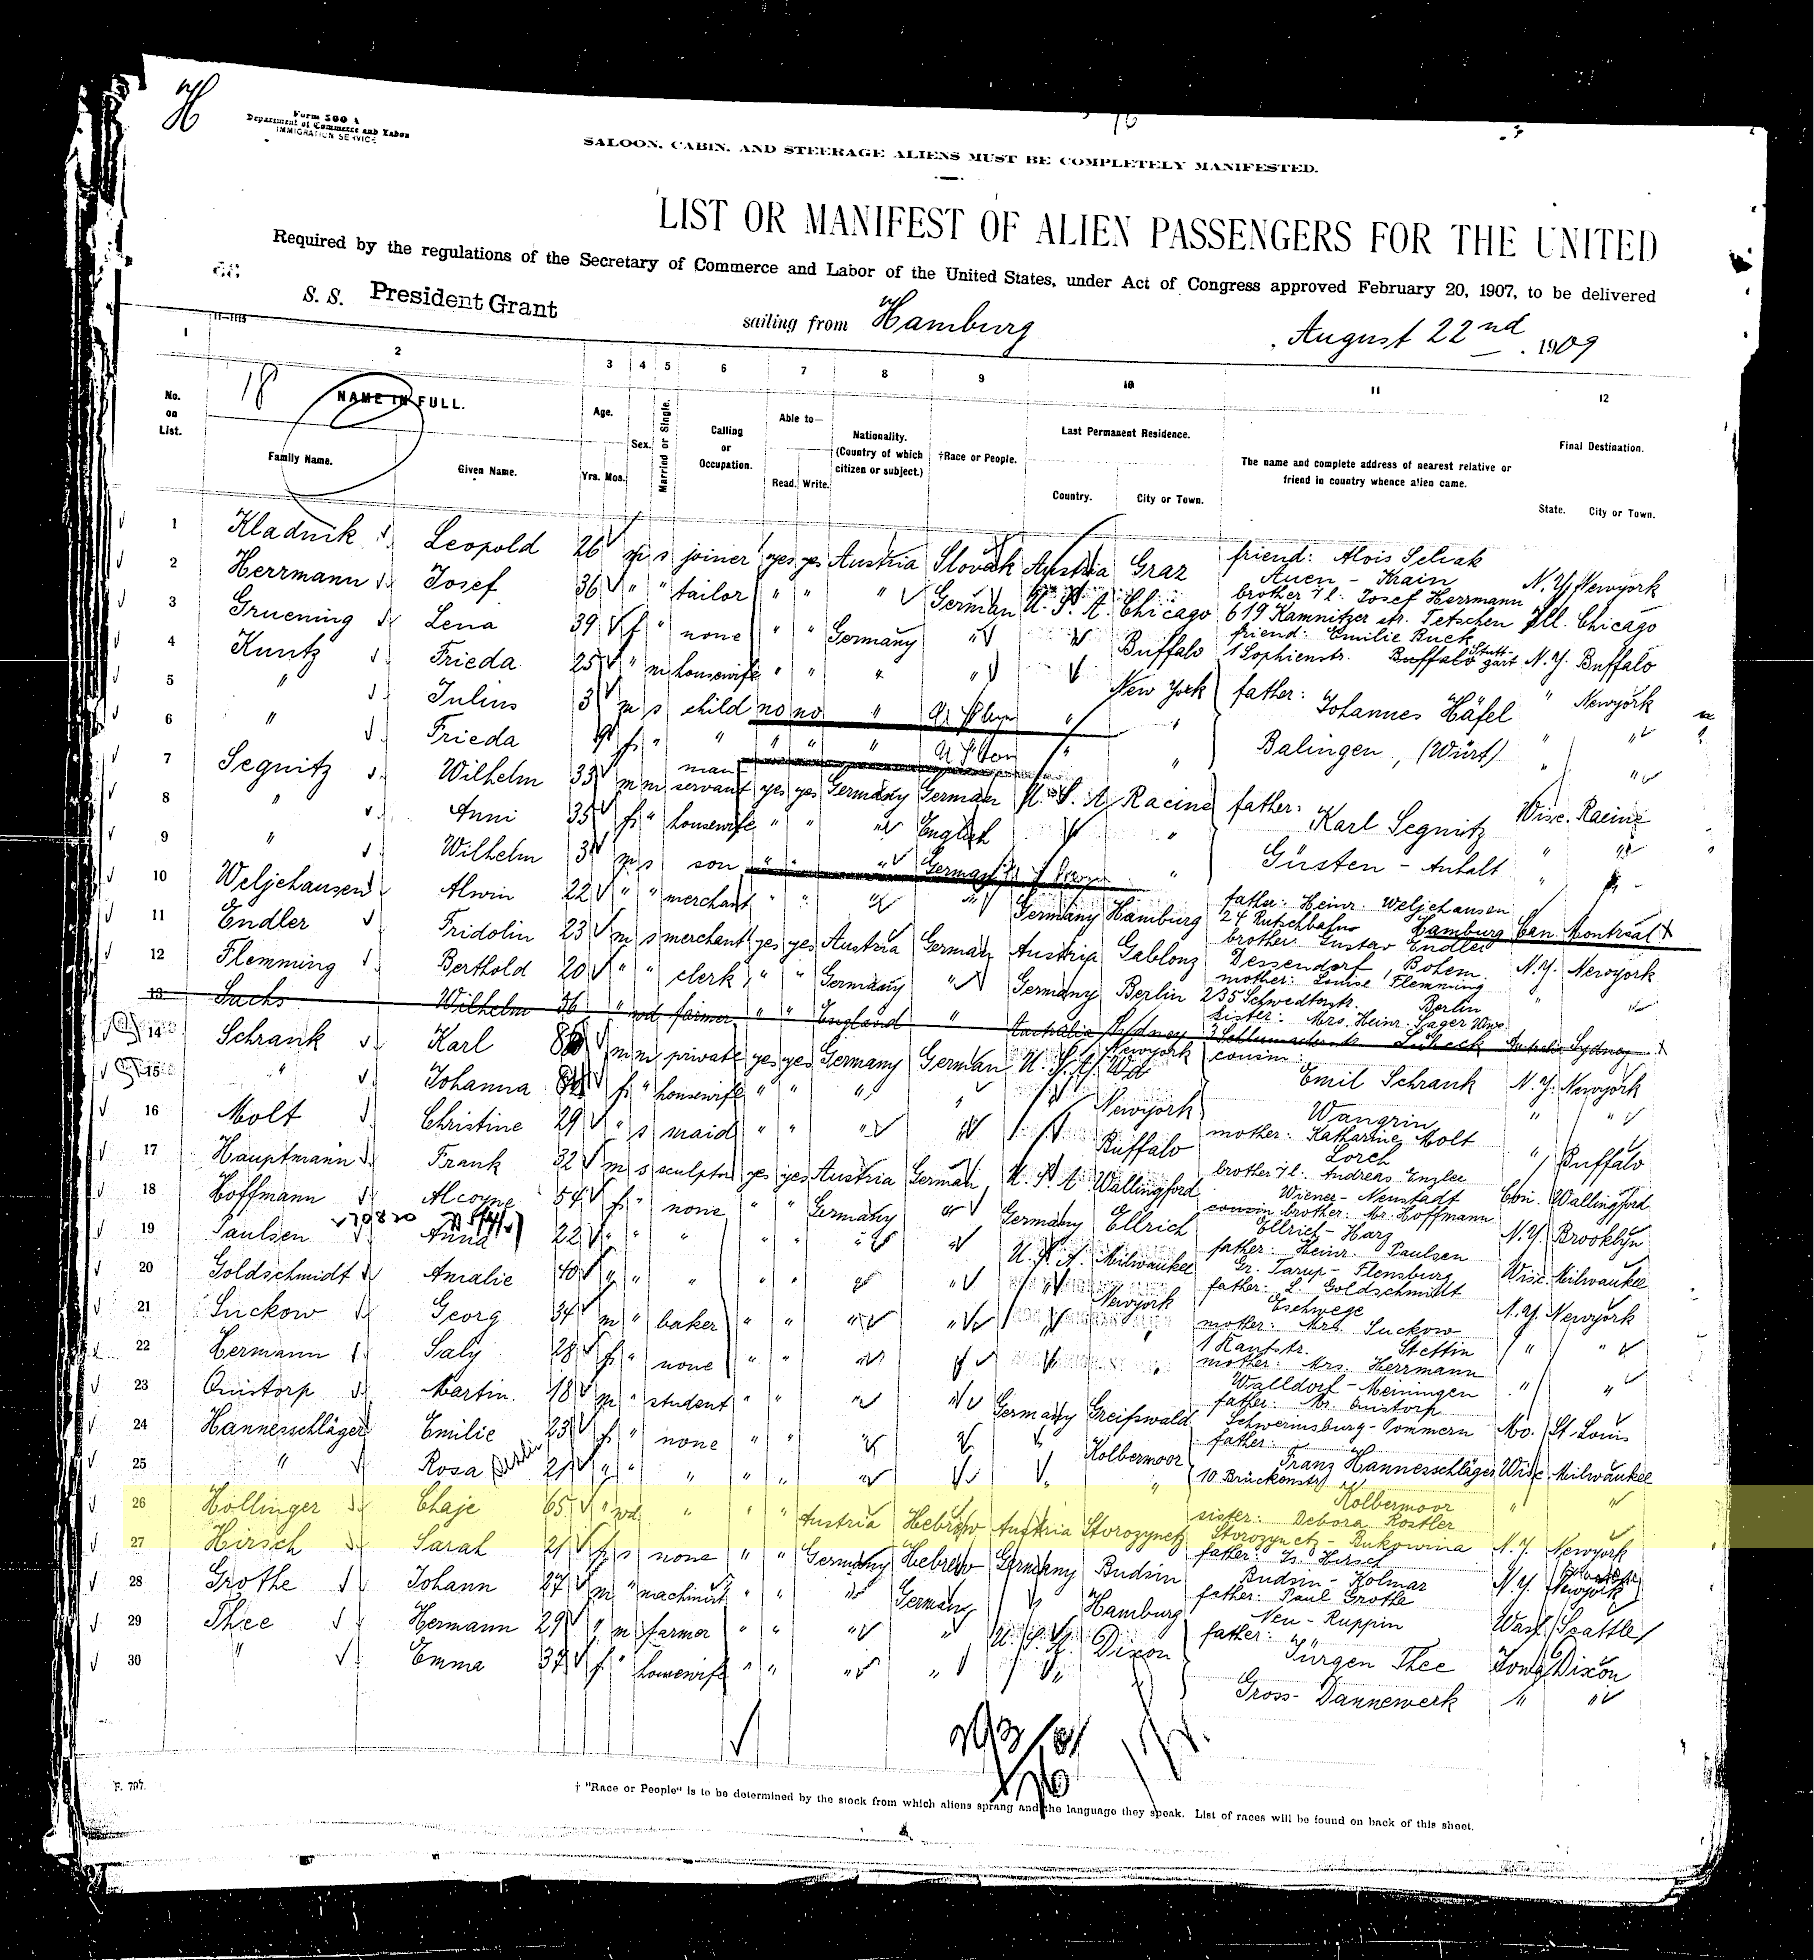 H
Form 500 A
Department of Commerce and Labor
IMMIGRATION SERVICE
SALOON, CABIN, AND STEERAGE ALIENS MUST BE COMPLETELY MANIFESTED.
LIST OR MANIFEST OF ALIEN PASSENGERS FOR THE UNITED
Required by the regulations of the Secretary of Commerce and Labor of the United States, under Act of Congress approved February 20, 1907, to be delivered
S. S. President Grant sailing from Hamburg , August 22nd , 1909
1 2 3 4 5 6 7 8 9 10 11 12
18
No. on List.
NAME IN FULL.
Family Name. Given Name.
Age.
Yrs. Mos.
Sex.
Married or Single.
Calling or Occupation.
Able to—
Read. Write.
Nationality. (Country of which citizen or subject.)
†Race or People.
Last Permanent Residence.
Country. City or Town.
The name and complete address of nearest relative or friend in country whence alien came.
Final Destination.
State. City or Town.
1 Kladnik Leopold 26 m s joiner yes yes Austria Slovak Austria Graz friend: Alois Selak Auen - Krain N.Y. Newyork
2 Herrmann Josef 36 " " tailor " " " German U.S.A. Chicago brother i. l. Josef Herrmann 619 Kamnitzer str. Tetschen Ill. Chicago
3 Gruening Lena 39 f " none " " Germany " " Buffalo friend: Emilie Ruck 1 Sophienstr. Stuttgart N.Y. Buffalo
4 Kuntz Frieda 25 " m housewife " " " " New York father: Johannes Häfel " Newyork
5 " Julius 3 m s child no no " " " Balingen, (Würt) " "
6 " Frieda f " " " " " " " " "
7 Segnitz Wilhelm 33 m m man servant yes yes Germany German U.S.A. Racine father: Karl Segnitz Wisc. Racine
8 " Anni 35 f " housewife " " " English " Güsten - Anhalt " "
9 " Wilhelm 3 m s son " " " German " "
10 Weljehausen Alwin 22 " " merchant " " " " Germany Hamburg father: Heinr. Weljehausen 24 Rutschbahn Hamburg Can. Montreal
11 Endler Fridolin 23 m s merchant yes yes Austria German Austria Gablonz brother: Gustav Endler Dessendorf, Bohem. N.Y. Newyork
12 Flemming Berthold 20 " " clerk " " Germany " Germany Berlin mother: Louise Flemming 235 Schwedterstr. Berlin " "
13 Sachs Wilhelm 56 " wd farmer " " England " Australia Sydney sister: Mrs. Heinr. Jager Lübeck Sydney
14 Schrank Karl m m private yes yes Germany German U.S.A. Newyork cousin: Emil Schrank N.Y. Newyork
15 " Johanna f " housewife " " " " " Newyork Wangrin " "
16 Molt Christine 29 " s maid " " " " " Buffalo mother: Katharine Molt Lorch " Buffalo
17 Hauptmann Frank 32 m s sculptor yes yes Austria German U.S.A. Wallingford brother i. l. Andreas Engler Wiener-Neustadt Con. Wallingford
18 Hoffmann Alcoyne 54 f " none " " Germany " Germany Ellrich cousin brother: Mr. Hoffmann Ellrich-Harz N.Y. Brooklyn
19 Paulsen Anna 22 " " " " " " " U.S.A. Milwaukee father: Heinr. Paulsen Gr. Tarup-Flensburg Wisc. Milwaukee
20 Goldschmidt Amalie 40 " " " " " " " " Newyork father: L. Goldschmidt Eschwege N.Y. Newyork
21 Suckow Georg 34 m " baker " " " " " " mother: Mrs. Suckow 1 Kantstr. Stettin " "
22 Hermann Saly 28 f " none " " " " " " mother: Mrs. Herrmann Walldorf-Meiningen " "
23 Quistorp Martin 18 m " student " " " " Germany Greifswald father: Mr. Quistorp Schwerinsburg-Pommern Mo. St. Louis
24 Hannesschläger Emilie 23 f " none " " " " " Kolbermoor father: Franz Hannesschläger Wisc. Milwaukee
25 " Rosa 21 " " " " " " " " " 10 Brückenstr. Kolbermoor " "
26 Hollinger Chaje 65 " wd " " " Austria Hebrew Austria Storozynetz sister: Debora Rostler Storozynetz - Bukowina N.Y. Newyork
27 Hirsch Sarah 21 f s none " " Germany Hebrew Germany Budsin father: Hirsch Budsin - Kolmar N.Y. Newyork
28 Grothe Johann 27 m " machinist " " " German " Hamburg father: Paul Grothe Neu-Ruppin Wash. Seattle
29 Thee Hermann 29 " m farmer " " " " U.S.A. Dixon father: Jürgen Thee Iowa Dixon
30 " Emma 37 f " housewife " " " " " Gross-Dannewerk " "
F. 797.
† "Race or People" is to be determined by the stock from which aliens sprang and the language they speak. List of races will be found on back of this sheet.